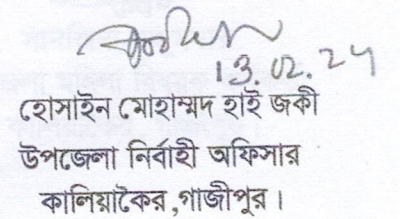 13.02.24
হোসাইন মোহাম্মদ হাই জকী
উপজেলা নির্বাহী অফিসার
কালিয়াকৈর,গাজীপুর।